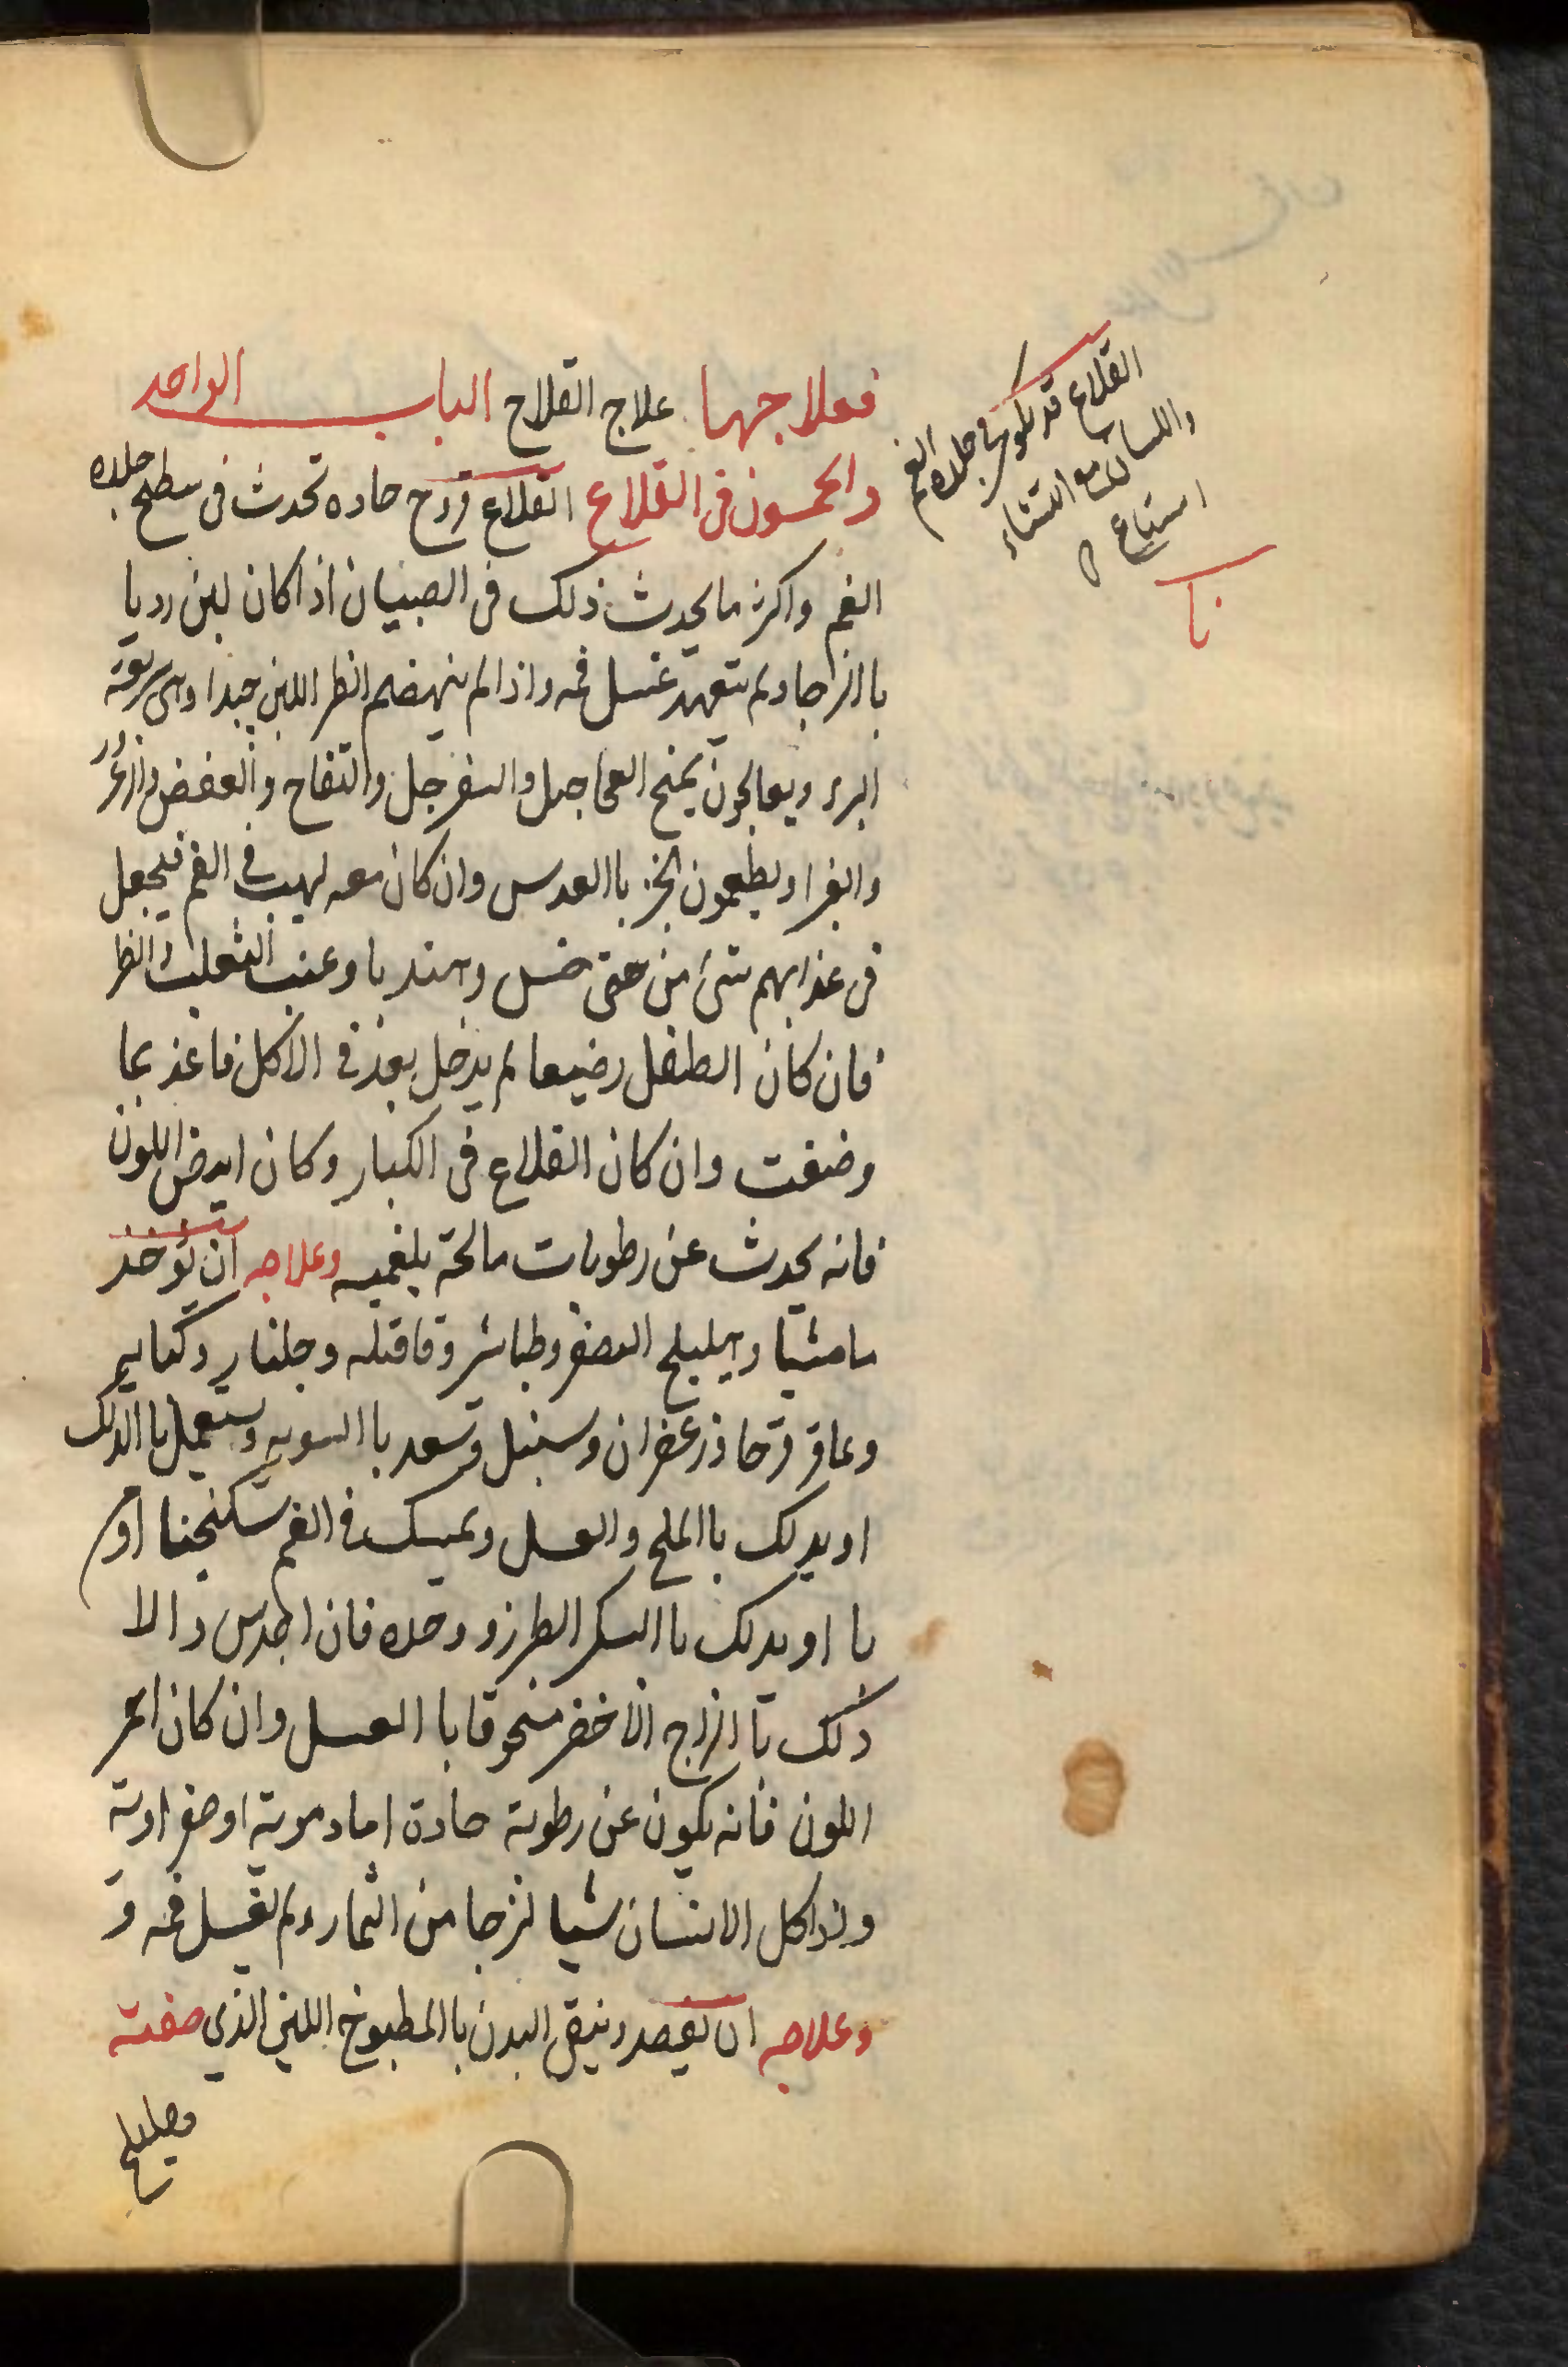 فعلاجهما علاج القلاح الباب الواحد
والخمسون فى القلاع القلاع قروح حاده تحدث فى سطح جلده
الفم واكثر ما يحدث ذلك فى الصبيان اذا كان لبن رديا
با الزجا ولم يتعهد غسل فمه واذا لم ينهضم الطر اللبن جيدا وهى سريعة
البرء ويعالجون بمنح العجاجيل والسفرجل والتفاح والعفص والزعرور
والغرا ويطعمون الخبز با العدس وان كان معه لهيب فى الفم فيجعل
فى غذايهم شئ من خس وهندبا وعنب الثعلب
فان كان الطفل رضيعا لم يدخل بعد فى الاكل فاغذ بما
وصفت وان كان القلاع فى الكبار وكان ابيض اللون
فانه يحدث عن رطوبات مالحة بلغميه وعلاجه ان يؤخذ
مامثيا وهليلج اصفر وطباشر وقاقله وجلنار وكبابه
وعاقر قرحا وزعفران وسنبل وسعد با السويه ويستعمل با الدلك
او يدلك با الملح والعسل ويمسك فى الفم سكنجنا او
با او يدلك با السكر الطبرزد وحده فان اجدى والا
دلك با الزاج الاخضر منحوقا با العسل وان كان احمر
اللون فانه يكون عن رطوبة حادة اما دموية او صفراوية
واذا اكل الانسان شيا لزجا من الثمار ولم يغسل فمه و
وعلاجه ان يفصد وينقى البدن با المطبوخ اللين الذي صفته
وهليلج
القلاع قد يكون فى جلدة الفم
واللسان مع انتشار
اتساع
نا